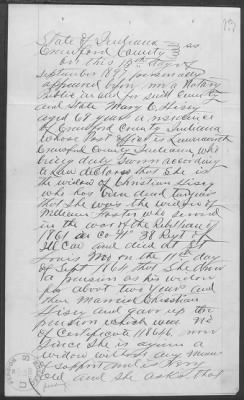 State of Indiana
Crawford County ss
on this 13th day of
September 1897 personally
appeared before me a Notary
Public in and for said County
and State Mary C. Sissy
aged 68 years a resident
of Crawford County Indiana
whose Post Office is Leavenworth
Crawford County Indiana who
being duly Sworn according
to Law declares that She is
the widow of Christian Sissy
who has been dead
that She was the widow of
William Foster who served
in the war of the Rebellion of
1861 as Co 38 Regt of
Ill Vol and died at St
Louis Mo on the 11th day
of Sept 1864 that She drew
a pension as his widow
for about two years and
then Married Christian
Sissy and gave up the
pension which was No
of Certificate 118646 now
Since She is again a
widow without any means
of Support and is Very
old and She asks that